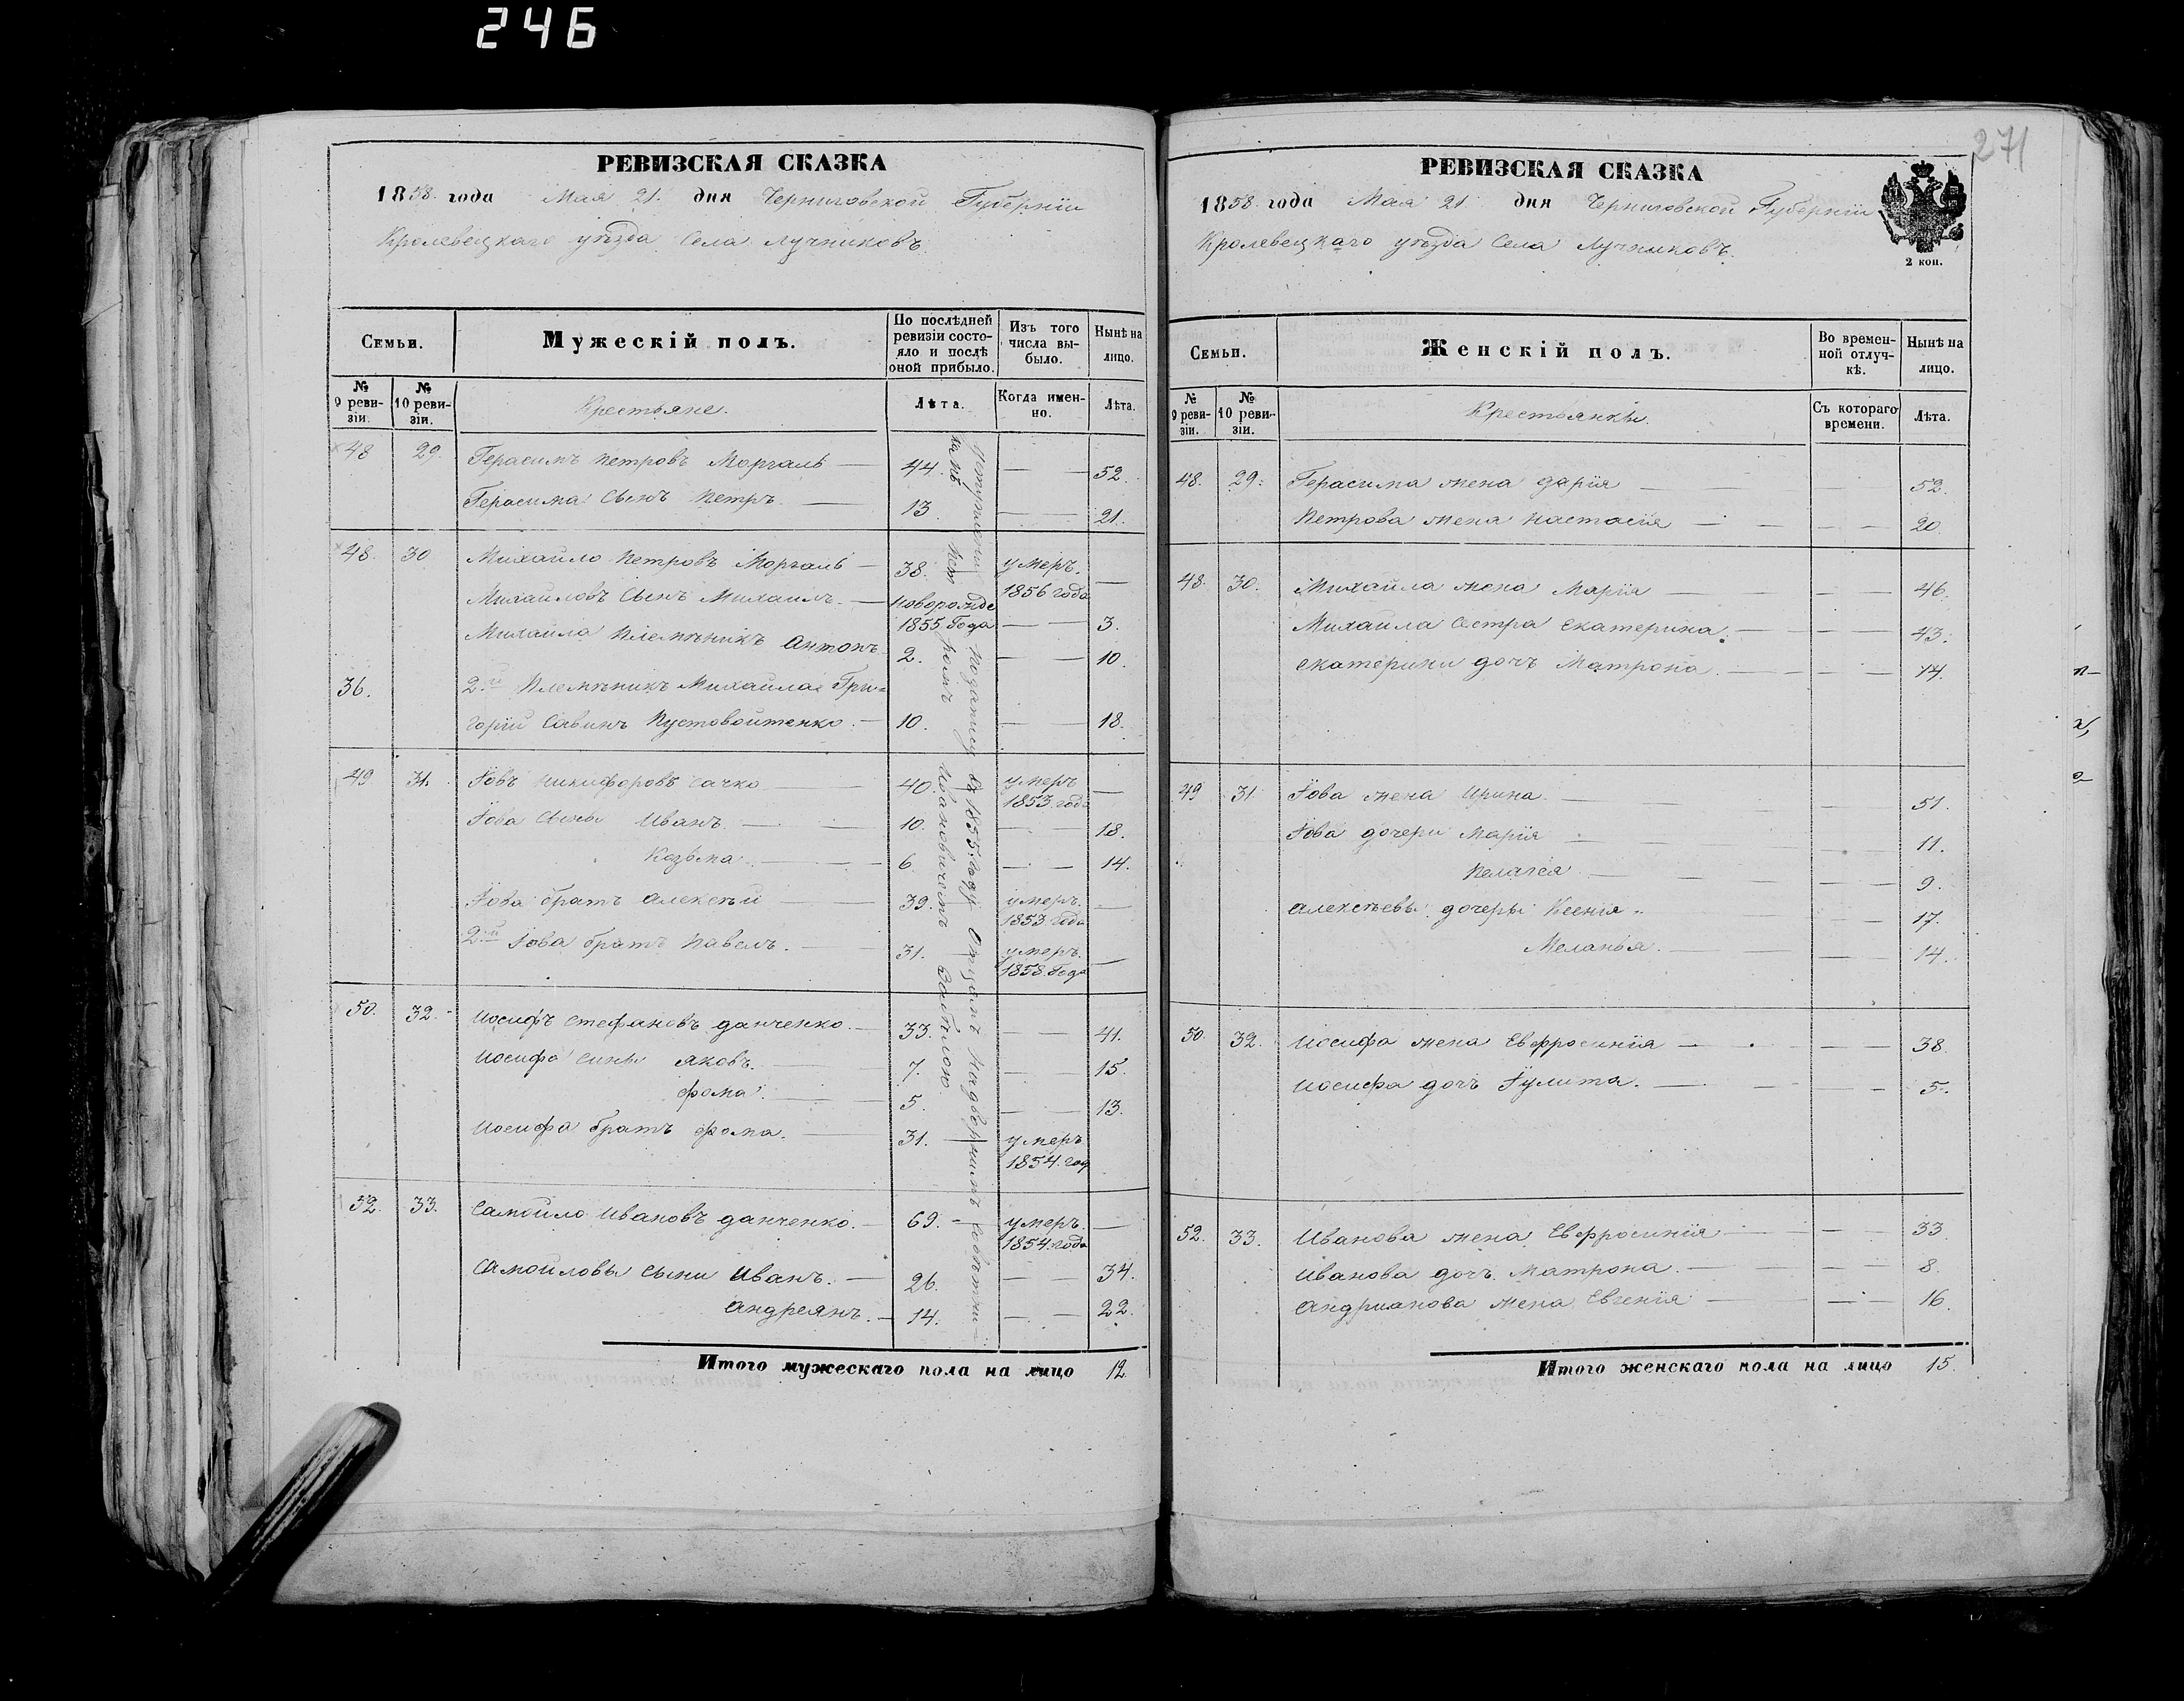 246
РЕВИЗСКАЯ СКАЗКА
1858. года Мая 21. дня Черниговской Губерніи
Кролевецкаго уѣзда Села Лучниковъ.
Семьи.
Мужескій полъ.
По послѣдней ревизіи состояло и послѣ оной прибыло.
Изъ того числа выбыло.
Нынѣ на лицо.
№ 9 ревизіи.
№ 10 ревизіи.
Крестьяне.
Лѣта.
Когда именно.
Лѣта.
48 29. Герасимъ Петровъ Моргаль — 44. — — 52.
Герасима Сынъ Петръ. — 13 — — 21.
48. 30 Михайло Петровъ Моргаль — 38. умеръ. 1856 года —
Михайловъ Сынъ Михаилъ. — новорожде 1855 года — — 3.
Михайла Племѣникъ Антонъ 2. — — 10.
36. 2й Племѣникъ Михайла Гри=
горій Савинъ Пустовойтенко. — 10. — — 18.
49 31. Іовъ Никифоровъ Сачко — 40. умеръ 1853 год —
Іова Сыны Иванъ. — — 10. — — 18.
Козьма. — — 6 — — 14.
Іова братъ Алексѣй — — 39. умеръ. 1853 года —
2й Іова братъ Павелъ. — 31. умеръ. 1858 Года —
50. 32. Иосифъ Стефановъ Данченко. — 33. — — 41.
Иосифа сыны Яковъ. — 7. — — 15.
Фома. — — 5. — — 13.
Иосифа братъ Фома. — 31. — умеръ 1854. год
52. 33. Самойло Ивановъ Данченко. — 69. — умеръ. 1854. года —
Самойловы Сыни Иванъ. — 26. — — 34.
Андреянъ. — 14. — — 22.
Итого мужескаго пола на лицо 12
въ 1855. Году Надворнымъ Совѣтни—
Ивановичемъ
271
РЕВИЗСКАЯ СКАЗКА
1858. года Мая 21 дня Черниговской Губерніи
Кролевецкаго уѣзда Села Лучниковъ.
2 коп.
Семьи.
Женскій полъ.
Во временной отлучкѣ.
Нынѣ на лицо.
№ 9 ревизіи.
№ 10 ревизіи.
Крестьянки.
Съ котораго времени.
Лѣта.
48. 29. Герасима жена Дарія — — — — 52.
Петрова жена Настасія — — — — 20.
48. 30. Михайла жена Марія — — — — 46.
Михайла Сестра Екатерина. — — — — 43.
Екатерини дочъ Матрона. — — — — 14.
49 31. Іова жена Ирина. — — — 51.
Іова дочери Марія — — — — 11.
Пелагея — — — — 9.
Алексѣевы дочеры Ксенія. — — 17.
Меланья. — — — 14.
50. 32. Иосифа жена Евфросинія — — — 38.
Иосифа дочъ Іулита. — — — — 5.
52. 33. Иванова жена Евфросинія — — — 33
Иванова дочъ Матрона. — — — — 8.
Андрианова жена Евгенія — — — 16.
Итого женскаго пола на лицо 15.